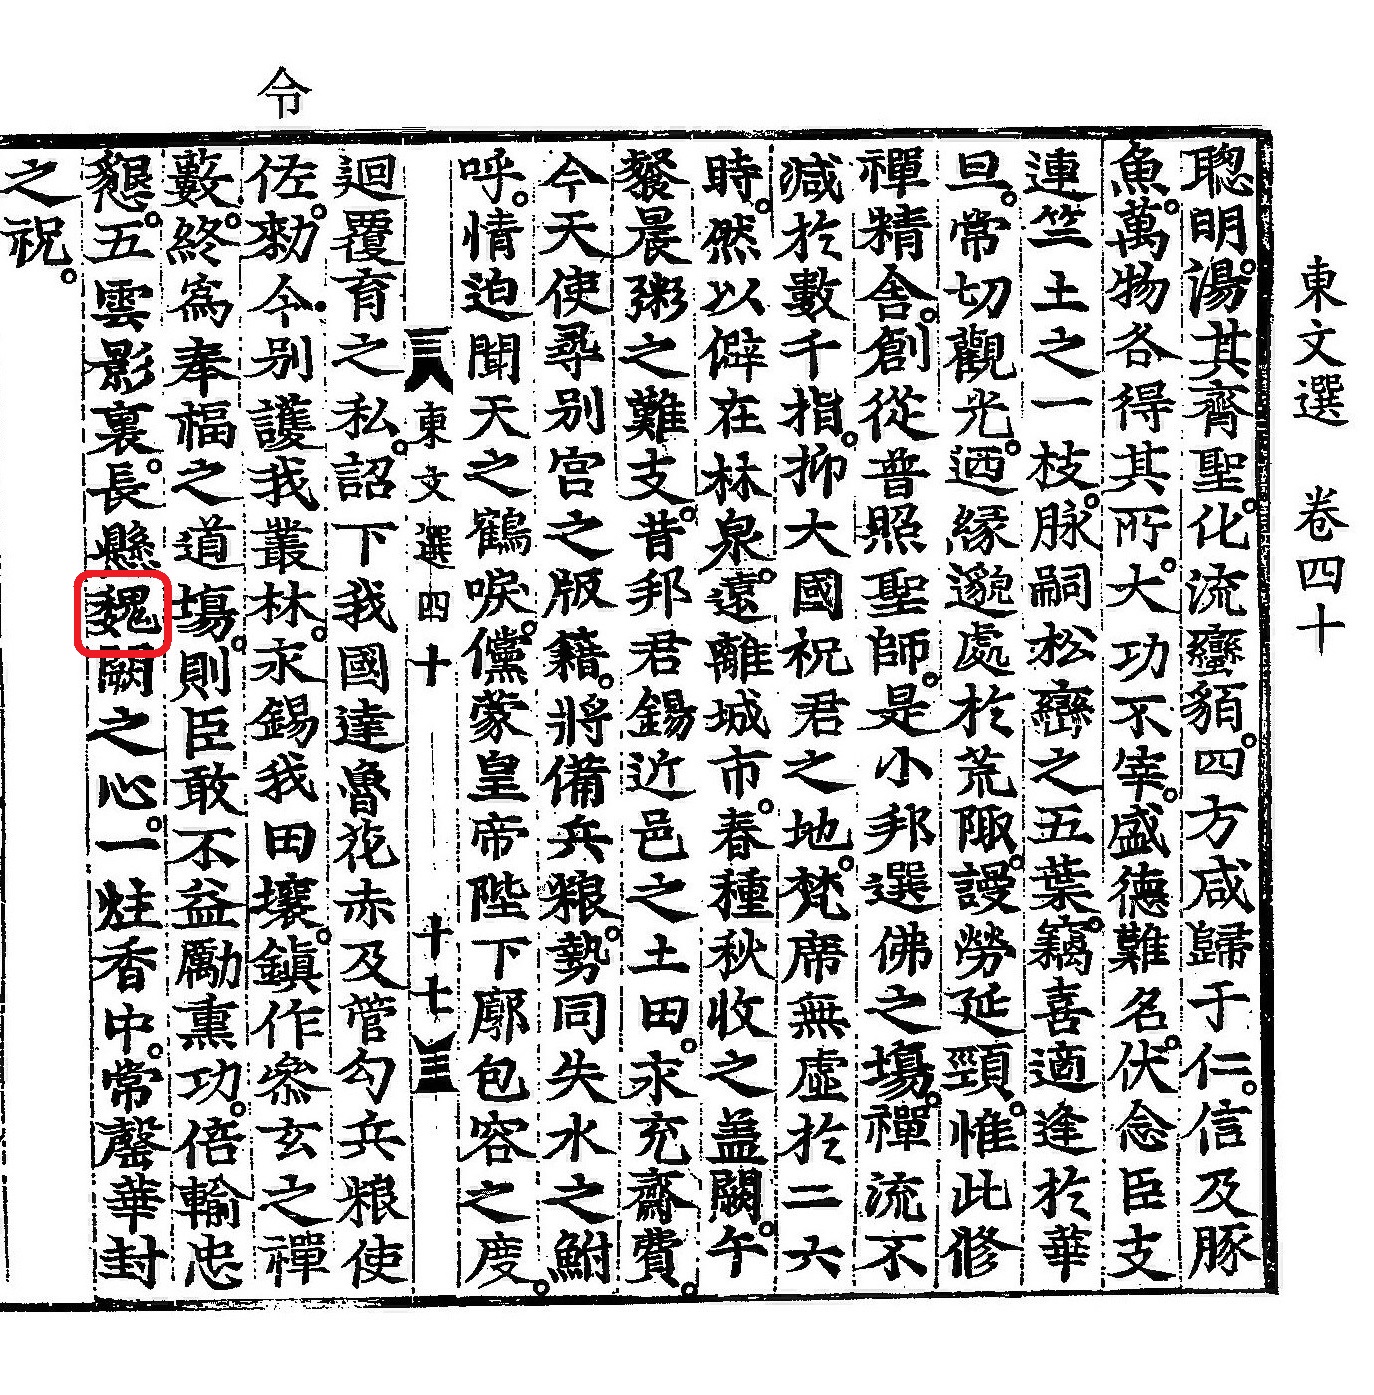 東文選 卷四十
聰明湯其齊聖化流蠻貊四方咸歸于仁信及豚
魚萬物各得其所大功不宰盛德難名伏念臣支
連竺土之一枝脉嗣松巒之五葉竊喜適逢於華
旦常切觀光迺緣邈處於荒陬謾勞延頸惟此修
禪精舍創從普照聖師是小邦選佛之塲禪流不
减於數千指抑大國祝君之地梵席無虛於二六
時然以僻在林泉遠離城市春種秋收之盖闕午
餐晨粥之難支昔邦君錫近邑之土田求充齋費
今天使尋別宮之版籍將備兵粮勢同失水之鮒
呼情迫聞天之鶴唳儻蒙皇帝陛下廓包容之度
東文選四十 十七
迴覆育之私詔下我國達魯花赤及管勾兵粮使
佐勑今別護我叢林永錫我田壤鎭作叅玄之禪
令
藪終爲奉福之道塲則臣敢不益勵熏功倍輸忠
懇五雲影裏長懸魏闕之心一炷香中常罄華封
之祝